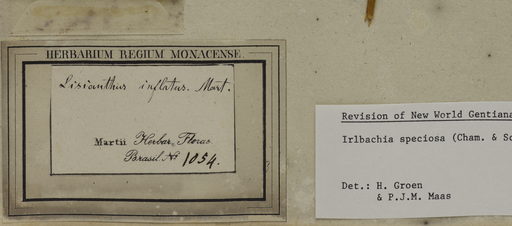 HERBARIUM REGIUM MONACENSE.
Lisianthus inflatus. Mart.
Martii Herbar. Florae
Brasil. No 1054.
Revision of New World Gentiana
Irlbachia speciosa (Cham. & Sc
Det.: H. Groen
& P.J.M. Maas